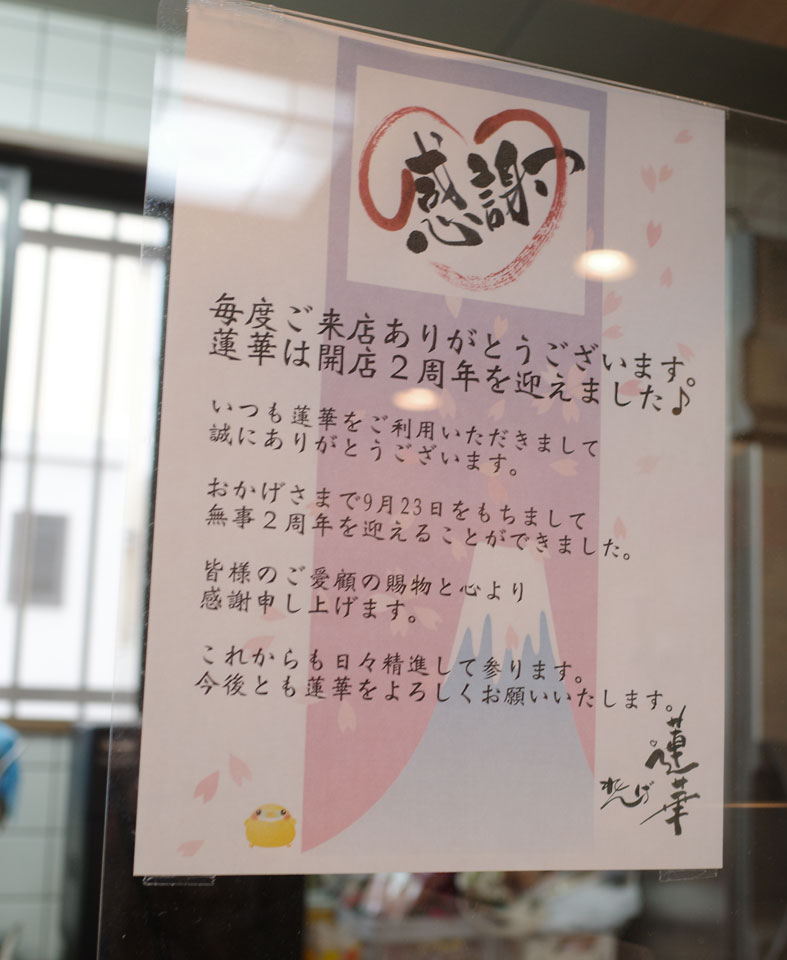 感謝
毎度ご来店ありがとうございます。
蓮華は開店２周年を迎えました♪
いつも蓮華をご利用いただきまして
誠にありがとうございます。
おかげさまで9月23日をもちまして
無事２周年を迎えることができました。
皆様のご愛顧の賜物と心より
感謝申し上げます。
これからも日々精進して参ります。
今後とも蓮華をよろしくお願いいたします。
蓮華
れんげ